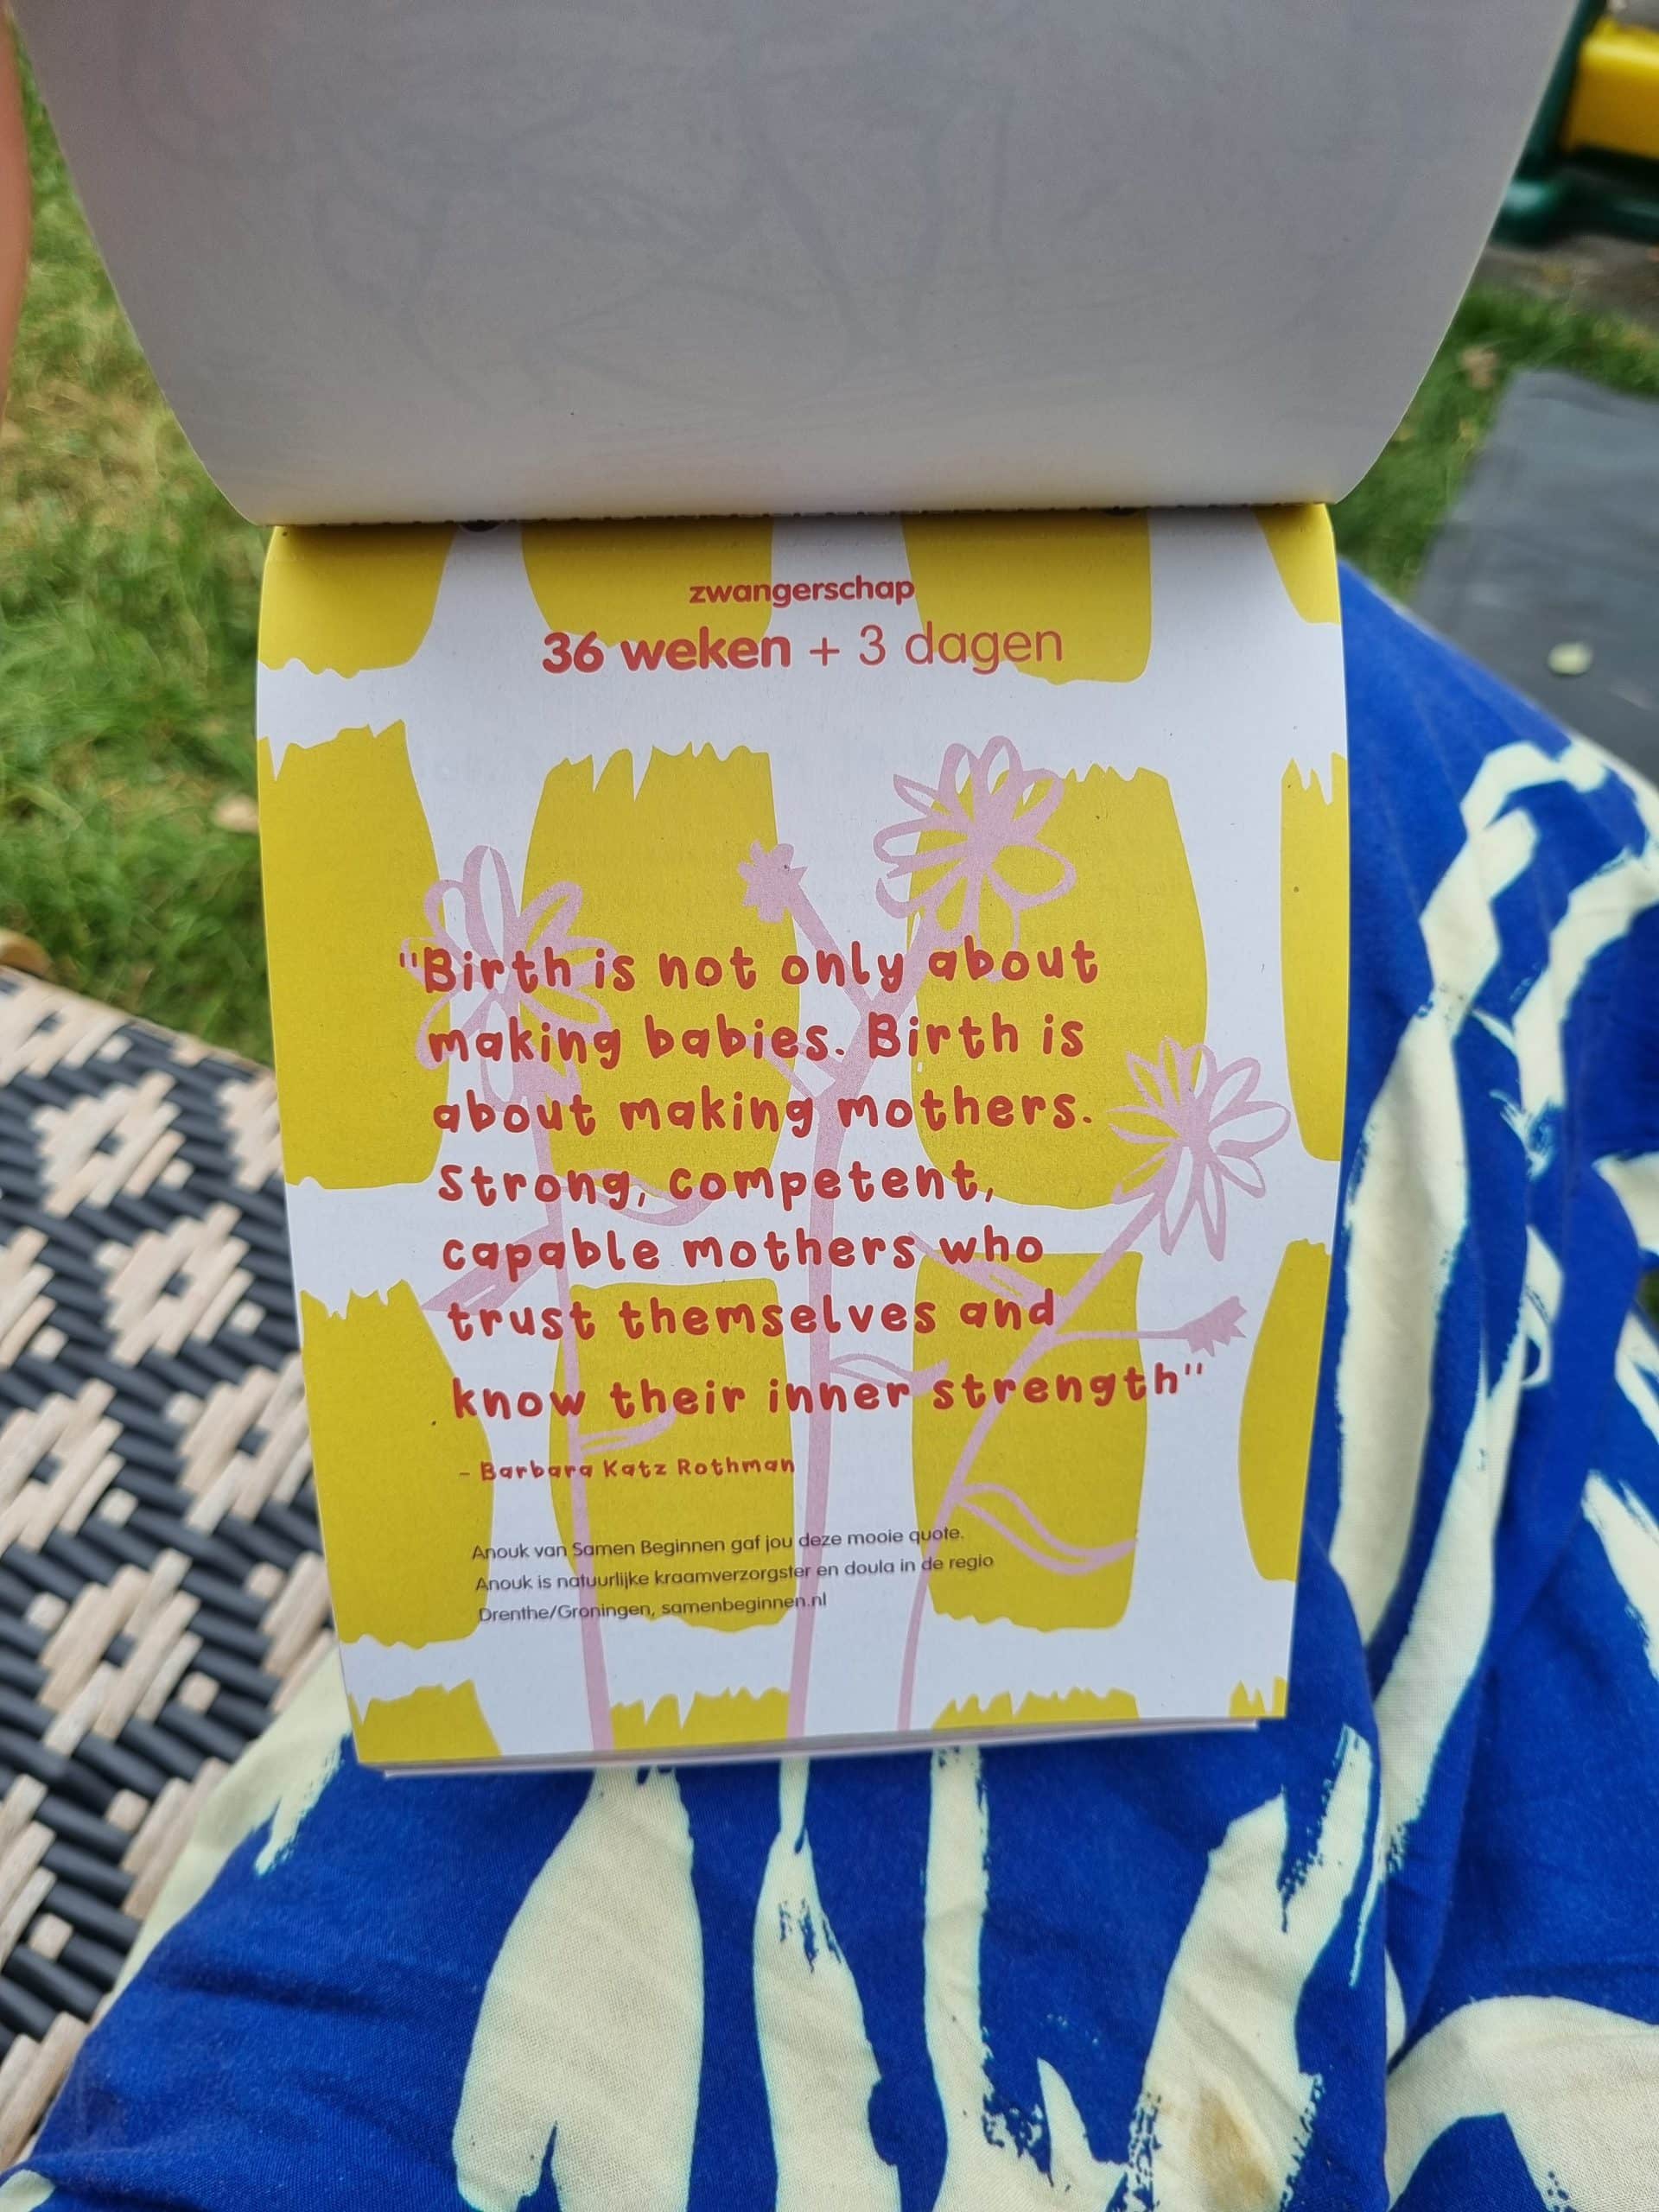 zwangerschap
36 weken + 3 dagen
"Birth is not only about
making babies. Birth is
about making mothers.
Strong, competent,
capable mothers who
trust themselves and
know their inner strength"
- Barbara Katz Rothman
Anouk van Samen Beginnen gaf jou deze mooie quote.
Anouk is natuurlijke kraamverzorgster en doula in de regio
Drenthe/Groningen, samenbeginnen.nl